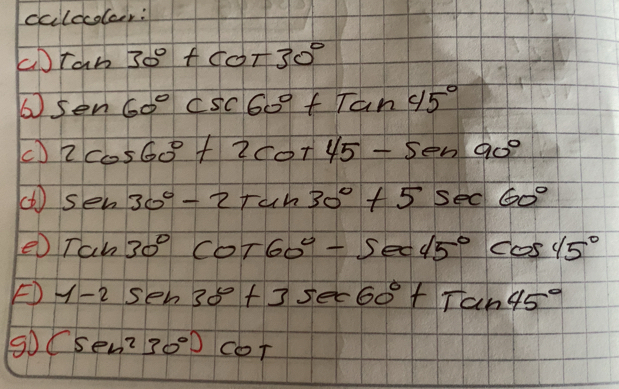 calcular:
a) Tan 30° + COT 30°
b) Sen 60° CSC 60° + Tan 45°
c) 2 cos 60° + 2 COT 45 - Sen 90°
d) Sen 30° - 2 Tan 30° + 5 Sec 60°
e) Tan 30° COT 60° - Sec 45° COS 45°
F) 1-2 Sen 30° + 3 Sec 60° + Tan 45°
g) (Sen² 30°) COT